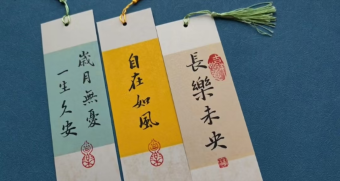 歲月無憂
一生久安
自在如風
長樂未央